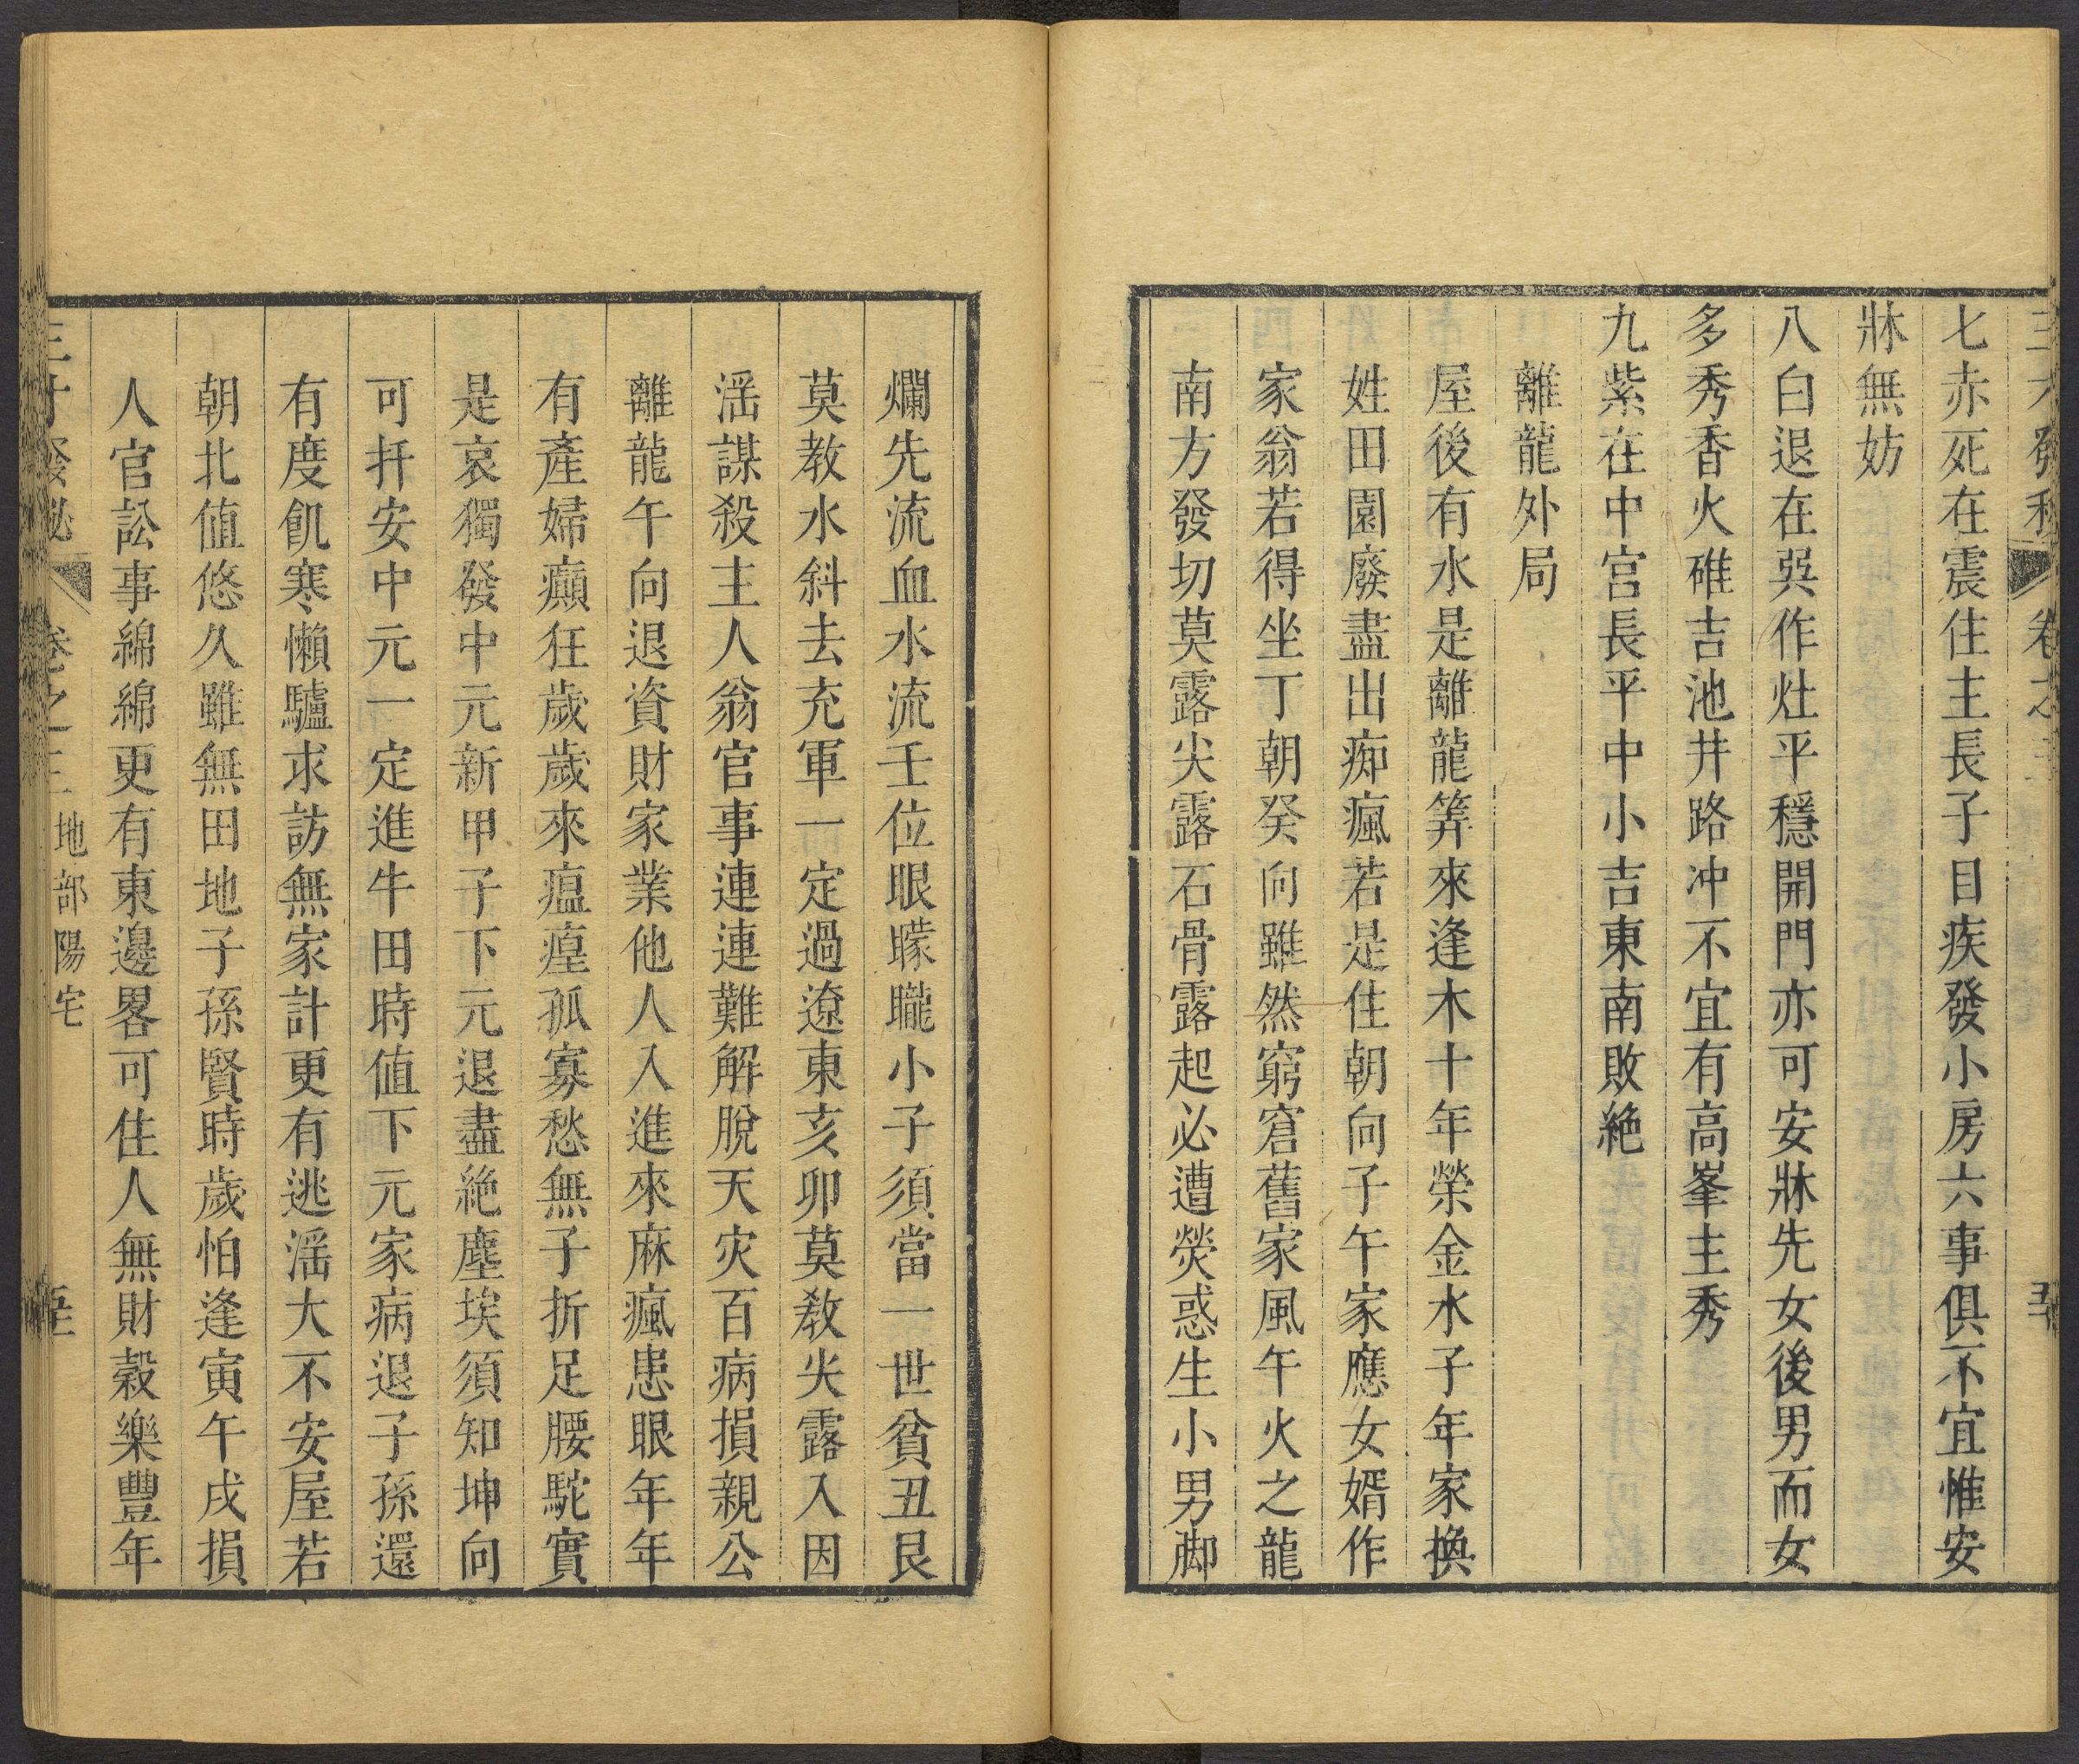 七赤死在震住主長子目疾發小房六事俱不宜惟安
牀無妨
八白退在巽作灶平穩開門亦可安牀先女後男而女
多秀香火碓吉池井路冲不宜有高峯主秀
九紫在中宮長平中小吉東南敗絶
離龍外局
屋後有水是離龍筭來逢木十年榮金水子年家換
姓田園廢盡出痴瘋若是住朝向子午家應女婿作
家翁若得坐丁朝癸向雖然窮窘舊家風午火之龍
南方發切莫露尖露石骨露起必遭熒惑生小男脚
爛先流血水流壬位眼矇矓小子須當一世貧丑艮
莫教水斜去充軍一定過遼東亥卯莫敎尖露入因
滛謀殺主人翁官事連連難解脫天灾百病損親公
離龍午向退資財家業他人入進來麻瘋患眼年年
有產婦癲狂歲歲來瘟瘽孤寡愁無子折足腰駝實
是哀獨發中元新甲子下元退盡絶塵埃須知坤向
可扦安中元一定進牛田時值下元家病退子孫還
有度飢寒懶驢求訪無家計更有逃滛大不安屋若
朝北値悠久雖無田地子孫賢時歲怕逢寅午戌損
人官訟事綿綿更有東邊畧可住人無財穀樂豐年
三才發秘 卷之三 地部陽宅